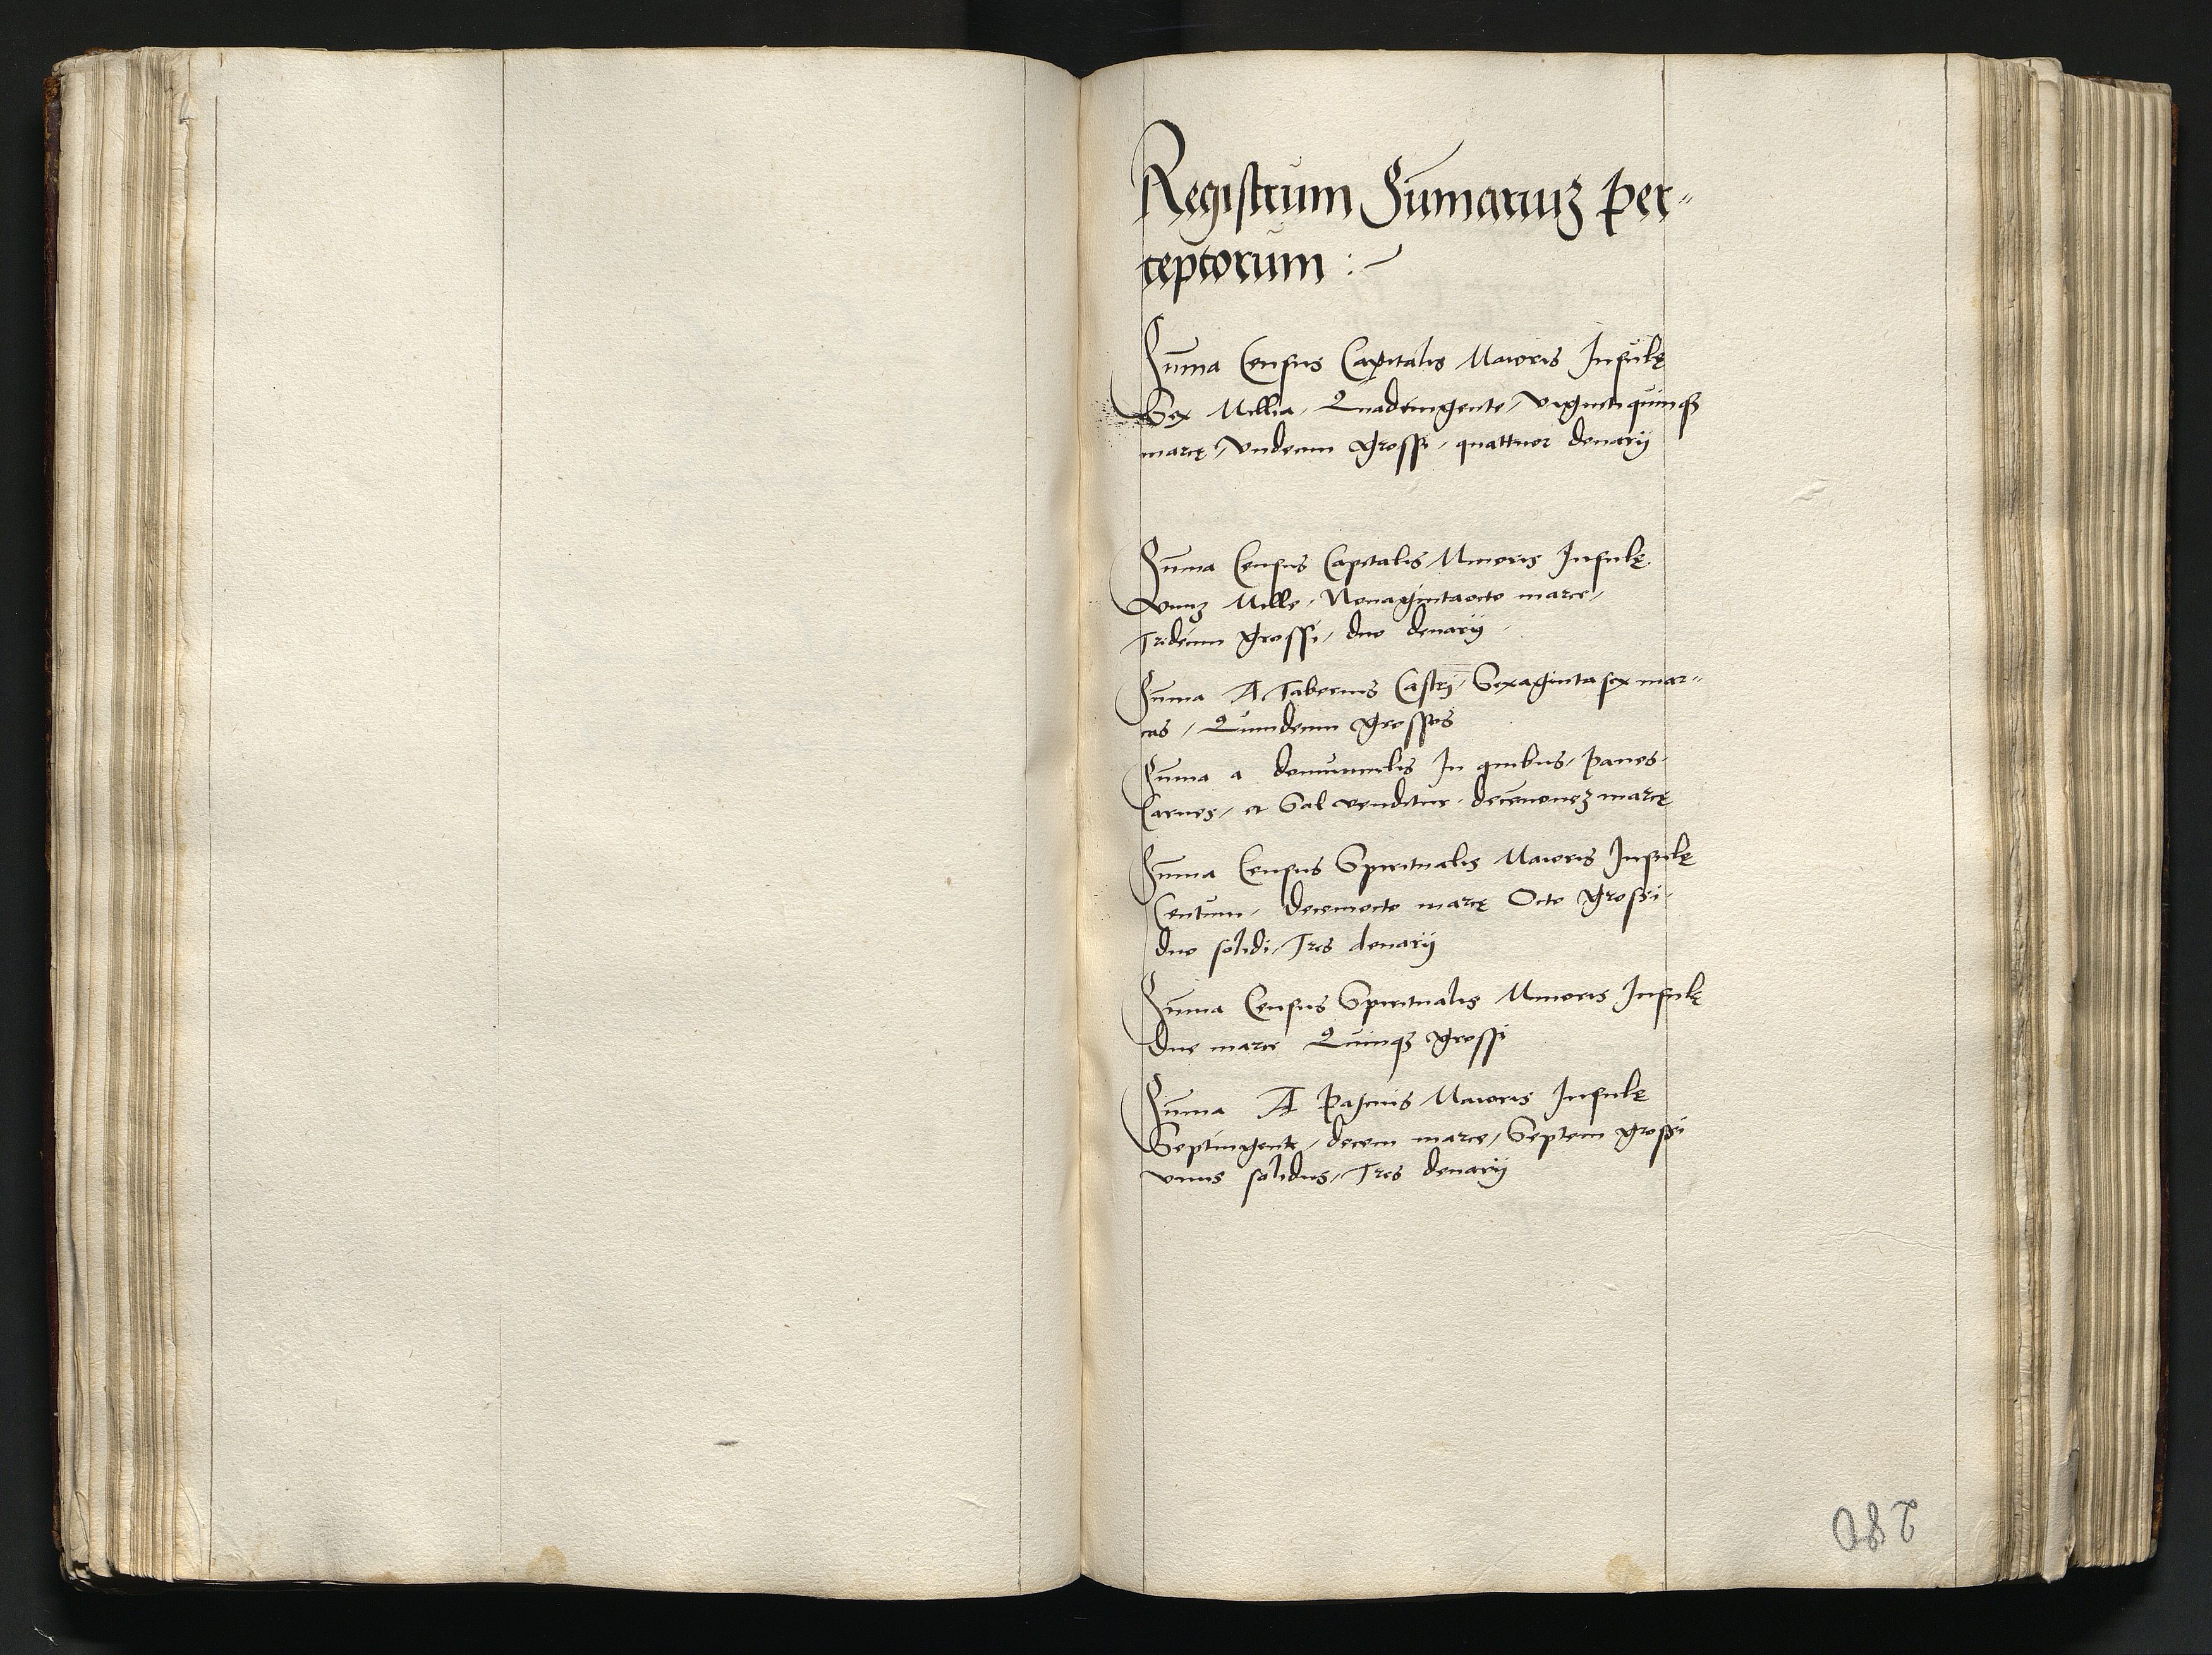 Registrum Sumariuʒ per„
ceptorum :~
Suma Census Capitalis Maioris Insulę
Sex Millia, Quadringente, viginti quinqʒ
marcę, Undecim grossi, quattuor denarij
Suma Census Capitalis Minoris Insulę.
Unuʒ Mille, Nonagintaocto marce,
Tredecim grossi, duo denarij
Suma A Tabernis Castri, Sexagintasex mar„
cas, Quindecim grossos
Suma a domunculis In quibus, panes,
Carnes, et Sal venditur, decemnoueʒ marcę
Suma Census Spiritualis Maioris Insulę
Centum, decemocto marcę Octo grossi,
duo solidi, Tres denarij
Suma Census Spiritualis Minoris Insulę
due marce Quinqʒ grossi
Suma A Maioris Insulę
Septingente, decem marce, Septem grossi
unus solidus, Tres denarij
280